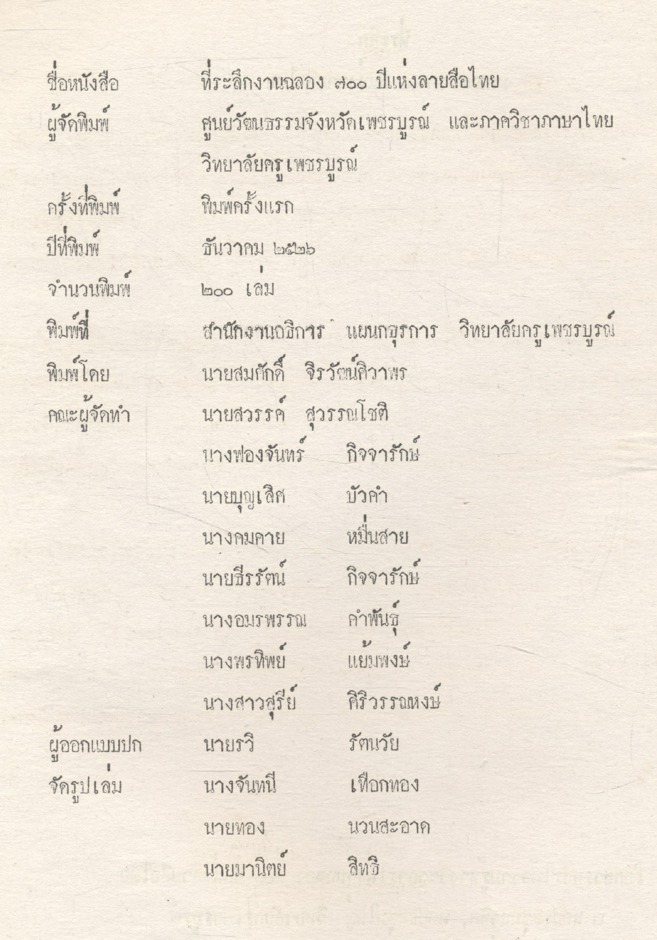 ชื่อหนังสือ ที่ระลึกงานฉลอง ๗๐๐ ปีแห่งลายสือไทย
ผู้จัดพิมพ์ ศูนย์วัฒนธรรมจังหวัดเพชรบูรณ์ และภาควิชาภาษาไทย
วิทยาลัยครูเพชรบูรณ์
ครั้งที่พิมพ์ พิมพ์ครั้งแรก
ปีที่พิมพ์ ธันวาคม ๒๕๒๖
จำนวนพิมพ์ ๒๐๐ เล่ม
พิมพ์ที่ สำนักงานอธิการ แผนกธุรการ วิทยาลัยครูเพชรบูรณ์
พิมพ์โดย นายสมศักดิ์ จิรวัฒน์ศิวาพร
คณะผู้จัดทำ นายสวรรค์ สุวรรณโชติ
นางฟองจันทร์ กิจจารักษ์
นายบุญเลิศ บัวคำ
นางคมคาย หมื่นสาย
นายธีรรัตน์ กิจจารักษ์
นางอมรพรรณ คำพันธุ์
นางพรทิพย์ แย้มพงษ์
นางสาวสุรีย์ ศิริวรรณหงษ์
ผู้ออกแบบปก นายรวิ รัตนวัย
จัดรูปเล่ม นางจันทนี เผือกทอง
นายทอง นวนสะอาด
นายมานิตย์ สิทธิ